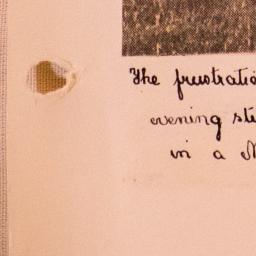 The frustratio
evening ste
in a